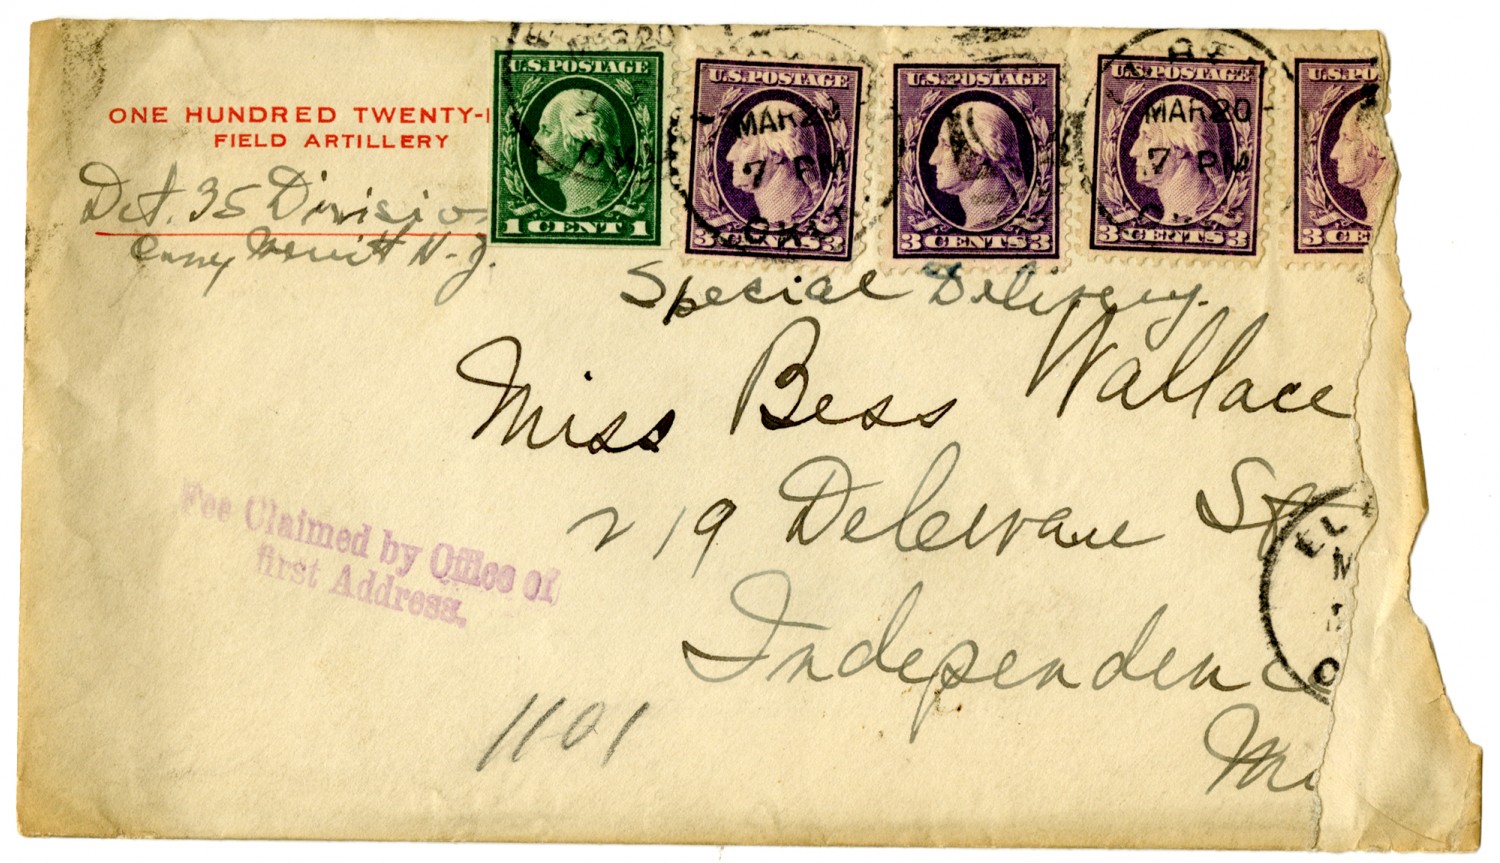 ONE HUNDRED TWENTY-
FIELD ARTILLERY
Det. 35 Division
Camp Merritt N.J.
U.S. POSTAGE
1 CENT 1
U.S. POSTAGE
3 CENTS 3
U.S. POSTAGE
3 CENTS 3
U.S. POSTAGE
3 CENTS 3
U.S. PO
3 CE
MAR 20
7 PM
OKL
MAR 20
7 PM
Special Delivery.
Miss Bess Wallace
219 Deleware St
Independenc
Mi
EL
Fee Claimed by Office of
first Address.
1101